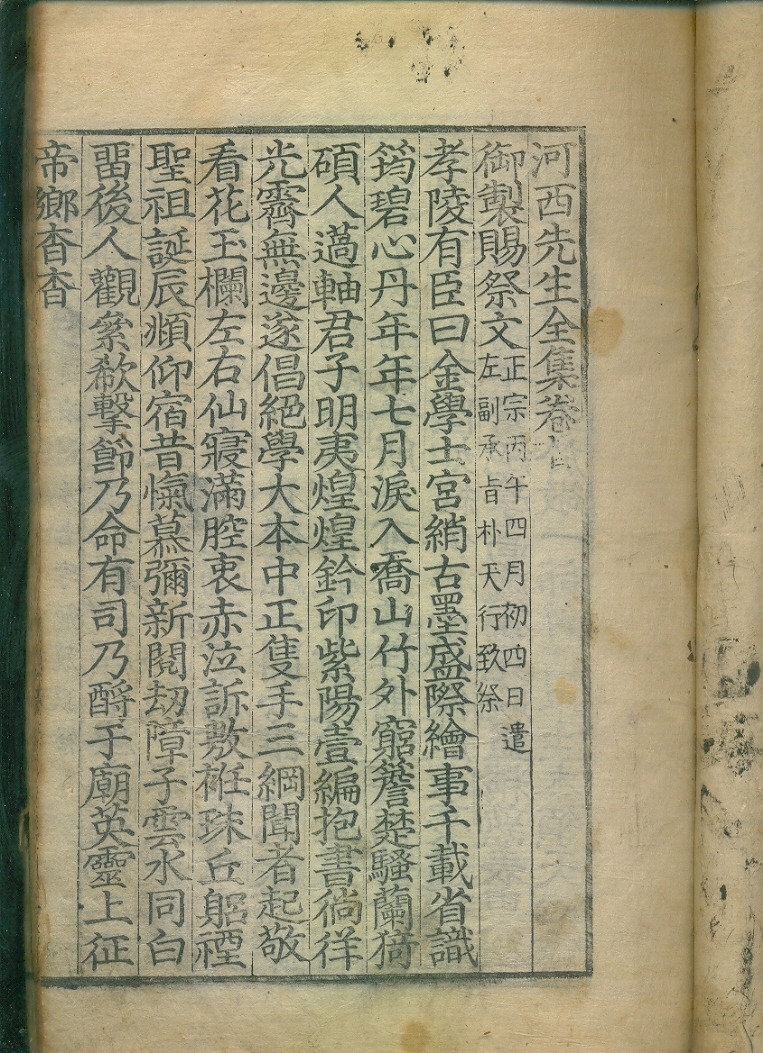 河西先生全集卷
御製賜祭文正宗丙午四月初四日遣
左副承旨朴天行致祭
孝陵有臣曰金學士宮綃古墨盛際繪事千載省識
筠碧心丹年年七月淚入喬山竹外窮簷楚騷蘭猗
碩人薖軸君子明夷煌煌鈐印紫陽壹編抱書徜徉
光霽無邊遂倡絕學大本中正隻手三綱聞者起敬
看花玉欄左右仙寢滿腔衷赤泣訴敷衽珠丘躬禋
聖祖誕辰頫仰宿昔愾慕彌新閱劫障子雲水同白
畱後人觀絫欷擊節乃命有司乃酹于廟英靈上征
帝鄉杳杳